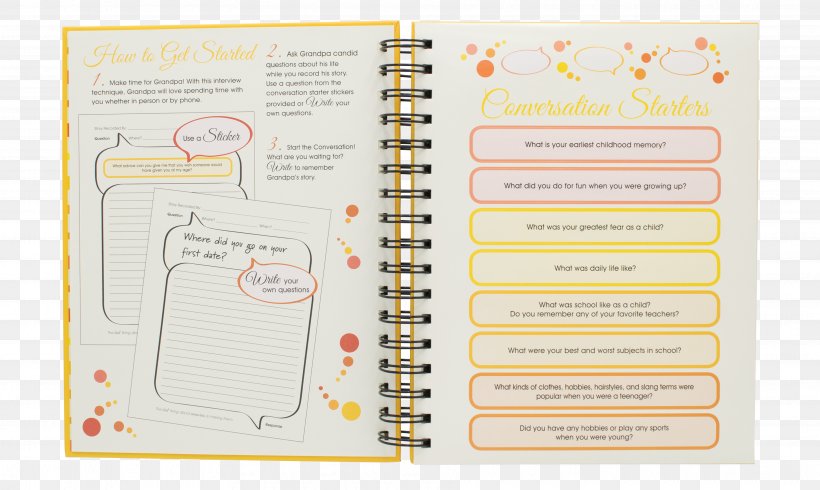 How to Get Started
1. Make time for Grandpa! With this interview
technique, Grandpa will love spending time with
you whether in person or by phone.
2. Ask Grandpa candid
questions about his life
while you record his story.
Use a question from the
conversation starter stickers
provided or Write your
own questions.
3. Start the Conversation!
What are you waiting for?
Write to remember
Grandpa's story.
Story Recorded By
Question
Where?
Use a Sticker
What advice can you give me that you wish someone would
have given you at my age?
Story Recorded By
Question
Where?
When?
Where did you go on your
first date?
Write your
own questions
Conversation Starters
What is your earliest childhood memory?
What did you do for fun when you were growing up?
What was your greatest fear as a child?
What was daily life like?
What was school like as a child?
Do you remember any of your favorite teachers?
What were your best and worst subjects in school?
What kinds of clothes, hobbies, hairstyles, and slang terms were
popular when you were a teenager?
Did you have any hobbies or play any sports
when you were young?